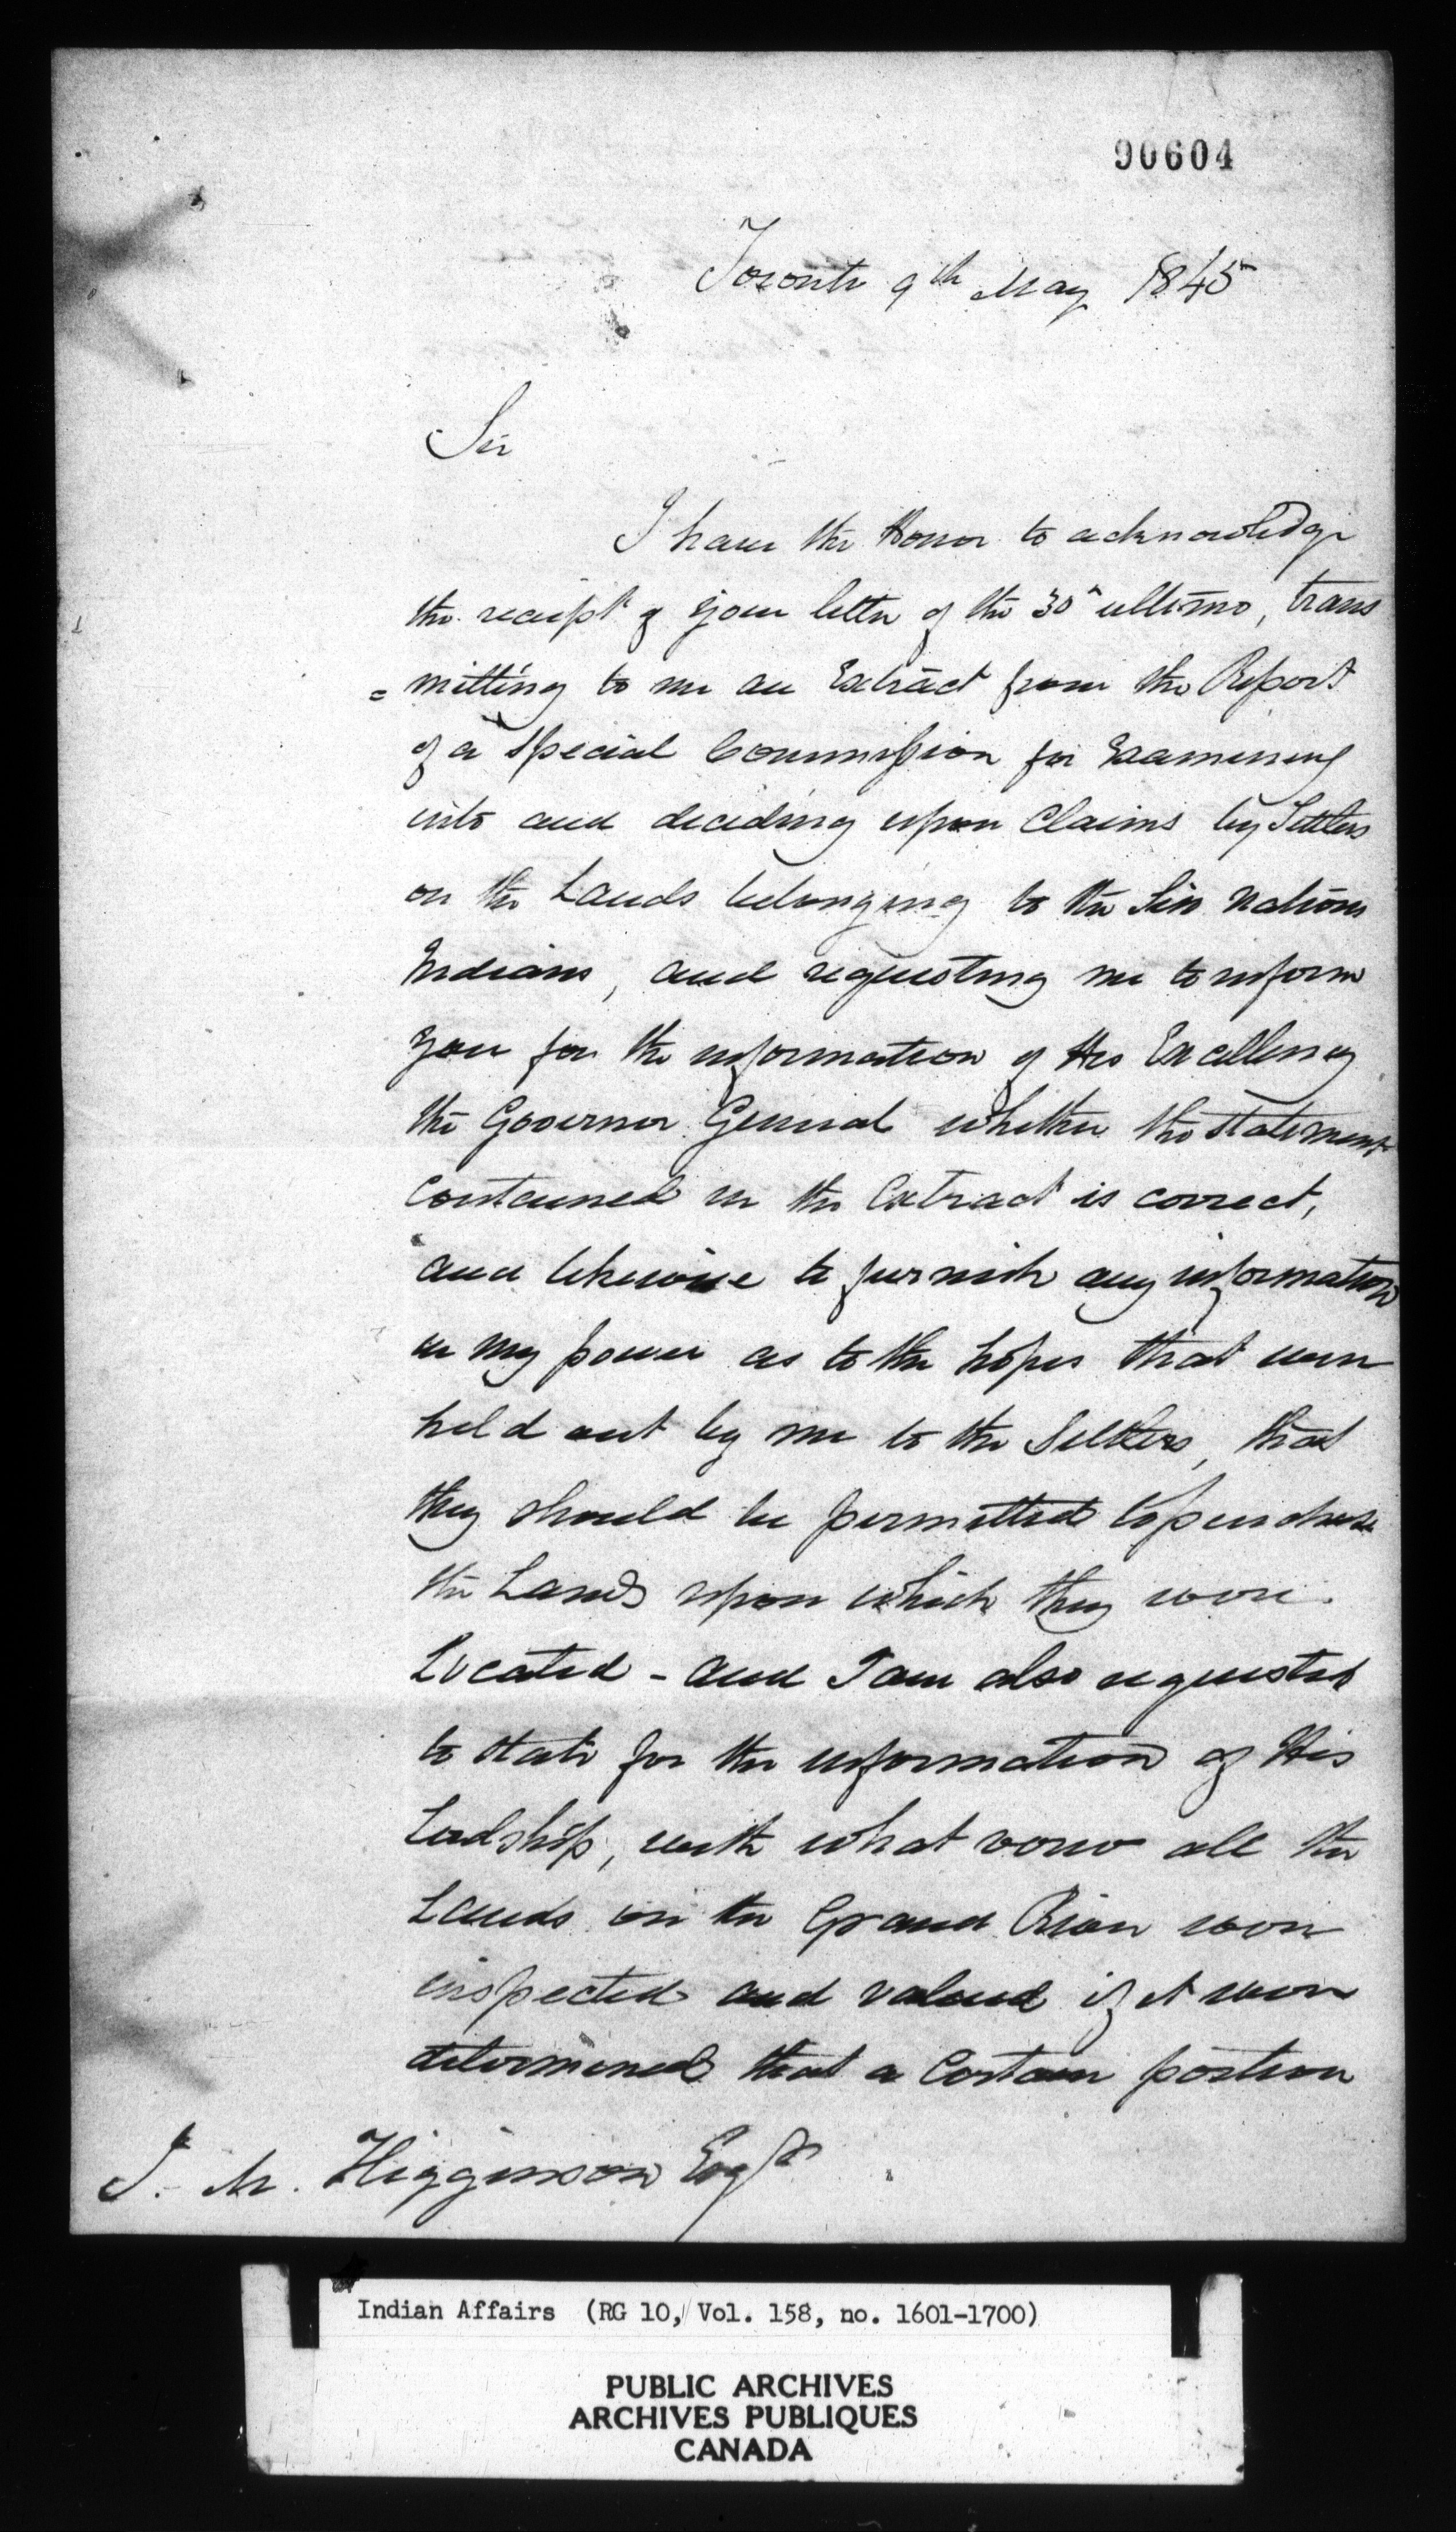 90604
Toronto 9th May 1845
Sir
I have the Honor to acknowledge
the receipt of your letter of the 30th ultimo, trans
= mitting to me an Extract from the Report
of a Special Commission for Examining
into and deciding upon Claims by Settlers
on the Lands belonging to the Six Nations
Indians, and requesting me to inform
you for the information of His Excellency
the Governor General whether the statement
contained in the Extract is correct,
and likewise to furnish any information
in my power as to the hopes that were
held out by me to the Settlers, that
they should be permitted to purchase
the Lands upon which they were
Located - and I am also requested
to state for the information of His
Lordship, with what view all the
Lands on the Grand River were
inspected and valued if it were
determined that a Certain portion
J. M. Higginson Esqr
Indian Affairs (RG 10, Vol. 158, no. 1601-1700)
PUBLIC ARCHIVES
ARCHIVES PUBLIQUES
CANADA